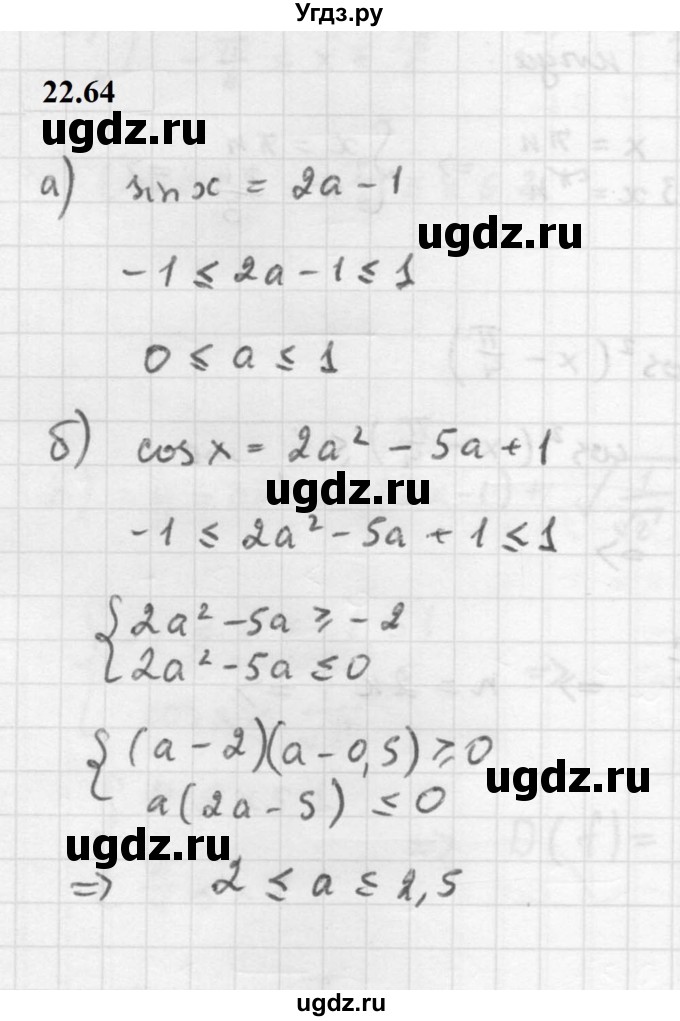 Угдз.ру
22.64
ugdz.ru
а) sin x = 2a - 1
ugdz.ru
-1 ≤ 2a - 1 ≤ 1
0 ≤ a ≤ 1
б) cos x = 2a² - 5a + 1
ugdz.ru
-1 ≤ 2a² - 5a + 1 ≤ 1
{ 2a² - 5a ≥ -2
2a² - 5a ≤ 0
{ (a - 2)(a - 0,5) ≥ 0
ugdz.ru
a(2a - 5) ≤ 0
ugdz.ru
=> 2 ≤ a ≤ 2,5
ugdz.ru